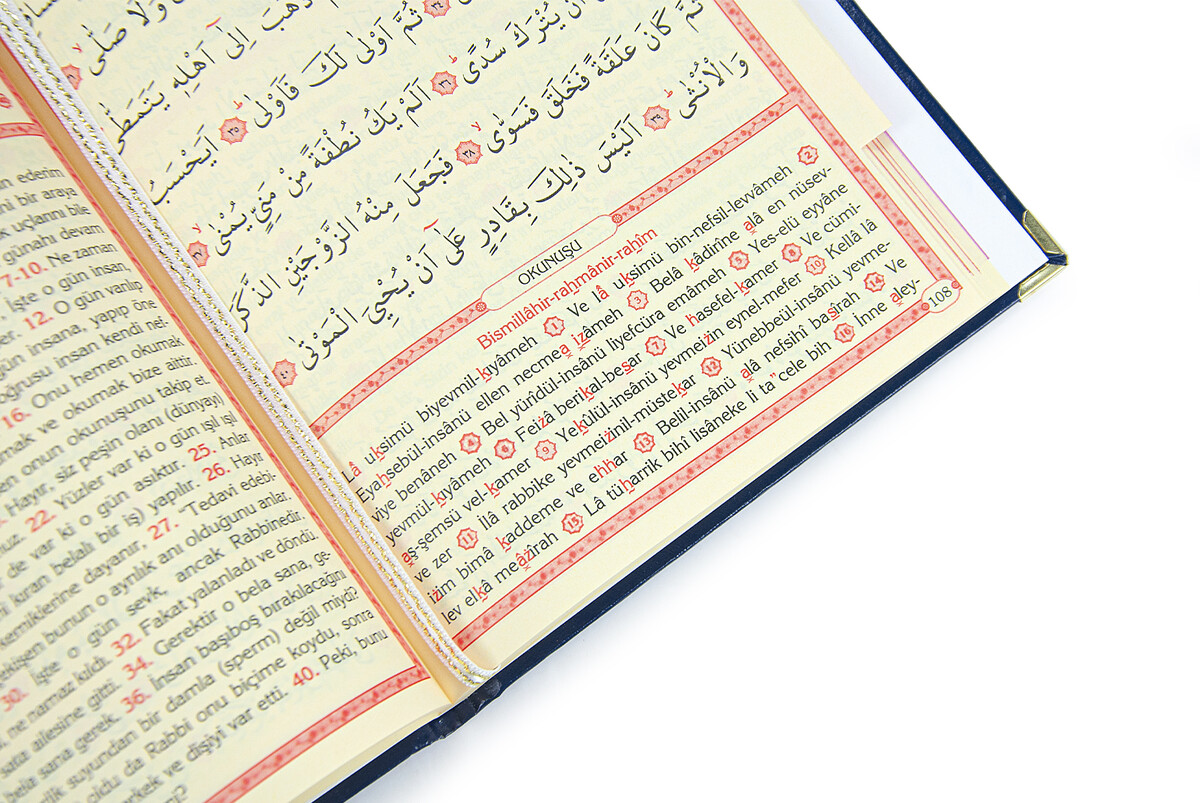 وَلَا صَلّٰى ٣١
ذَهَبَ اِلٰٓى اَهْلِه۪ يَتَمَطّٰى
٣٤ ثُمَّ اَوْلٰى لَكَ فَاَوْلٰى ٣٥ اَيَحْسَبُ
اَنْ يُتْرَكَ سُدًى ٣٦ اَلَمْ يَكُ نُطْفَةً مِنْ مَنِيٍّ يُمْنٰى ٣٧
ثُمَّ كَانَ عَلَقَةً فَخَلَقَ فَسَوّٰى ٣٨ فَجَعَلَ مِنْهُ الزَّوْجَيْنِ الذَّكَرَ
وَالْاُنْثٰى ٣٩ اَلَيْسَ ذٰلِكَ بِقَادِرٍ عَلٰٓى اَنْ يُحْيِيَ الْمَوْتٰى ٤٠
OKUNUŞU
Bismillâhir-raḥmânir-raḥîm
Lâ uksimü biyevmil-kıyâmeh 1 Ve lâ uksimü bin-nefsil-levvâmeh 2
Eyahsebül-insânü ellen necmea ızâmeh 3 Belâ kâdirîne alâ en nüsev-
viye benâneh 4 Bel yürîdül-insânü liyefcüra emâmeh 5 Yes-elü eyyâne
yevmül-kıyâmeh 6 Feizâ berikal-besar 7 Ve hasefel-kamer 8 Ve cümi-
aş-şemsü vel-kamer 9 Yekûlül-insânü yevmeizin eynel-mefer 10 Kellâ lâ
ve zer 11 İlâ rabbike yevmeizinil-müstekar 12 Yünebbeül-insânü yevme-
izim bimâ kaddeme ve ehhar 13 Belil-insânü alâ nefsihî basîrah 14 Ve
lev elkâ meâzîrah 15 Lâ tüharrik bihî lisâneke li ta"cele bih 16 İnne aley-
108
ederim
ni bir araya
uçlarını bile
günahı devam
7-10. Ne zaman
İşte o gün insan,
12. O gün varılıp
gün insana, yapıp öne
oğrusu insan kendi nef-
16. Onu hemen okumak
mak ve okumak bize aittir.
en onun okunuşunu takip et.
Hayır, siz peşin olanı (dünyayı)
22. Yüzler var ki o gün ışıl ışıl
de var ki o gün asıktır. 25. Anlar
kıran belalı bir iş) yapılır. 26. Hayır
kemiklerine dayanır, 27. "Tedavi edebi-
ekişen bunun o ayrılık anı olduğunu anlar.
30. İşte o gün sevk, ancak Rabbinedir.
ne namaz kıldı. 32. Fakat yalanladı ve döndü.
ailesine gitti. 34. Gerektir o bela sana, ge-
bela sana gerek. 36. İnsan başıboş bırakılacağını
suyundan bir damla (sperm) değil miydi?
oldu da Rabbi onu biçime koydu, sonra
erkek ve dişiyi var etti. 40. Peki, bunu